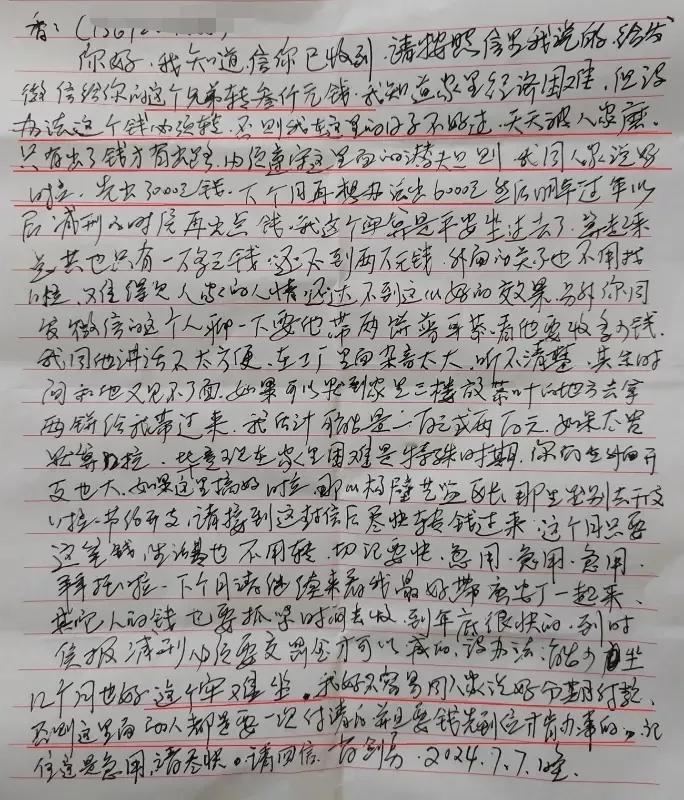 香：(13612
你好，我知道信你已收到，请按照信里我说的，给发
微信给你的这个兄弟转叁仟元钱。我知道家里经济困难，但没
办法这个钱必须转，否则我在这里的日子不好过，天天被人家磨。
只有出了钱才有出路，必须遵守这里面的潜规则 我同人家说好
的啦，先出3000元钱，下个月再想办法出6000元 然后明年过年以
后减刑的时候再出点钱，我这个牢算是平安坐过去了，算起来
总共也只有一万多元钱，还不到两万元钱，外面的关系也不用找
啦，难得见人家的人情，还达不到这么好的效果，另外你同
发微信的这个人聊一下要他带两饼普耳茶，看他要收多少钱。
我同他讲话不太方便，在工厂里面杂音太大，听不清楚，其余时
间和他又见不了面，如果可以 到家里三楼放茶叶的地方去拿
两饼给我带过来，我估计可能是一百元或两百元，如果太贵
就算啦，毕竟现在家里困难是特殊时期，你的生外面开
支也大，如果这里搞好的啦，那么 那里 别去开支
的啦，节约开支，请接到这封信后尽快转钱过来，这个月只要
这笔钱，生活费也不用转，切记要快，急用，急用，急用，
拜托啦，下个月请继续来看我，最好带 一起来，
其它人的钱也要抓紧时间去收，到年底很快的，到时
候报减刑必须要交罚金才可以减的，没办法，能少坐
几个月也好这个牢难坐，我好不容易同人家说好分期付款，
否则这里面的人都是要一次付清的并且要钱先到位才肯办事的，记
住这是急用，请尽快。请回信 2024.7.7.晚.